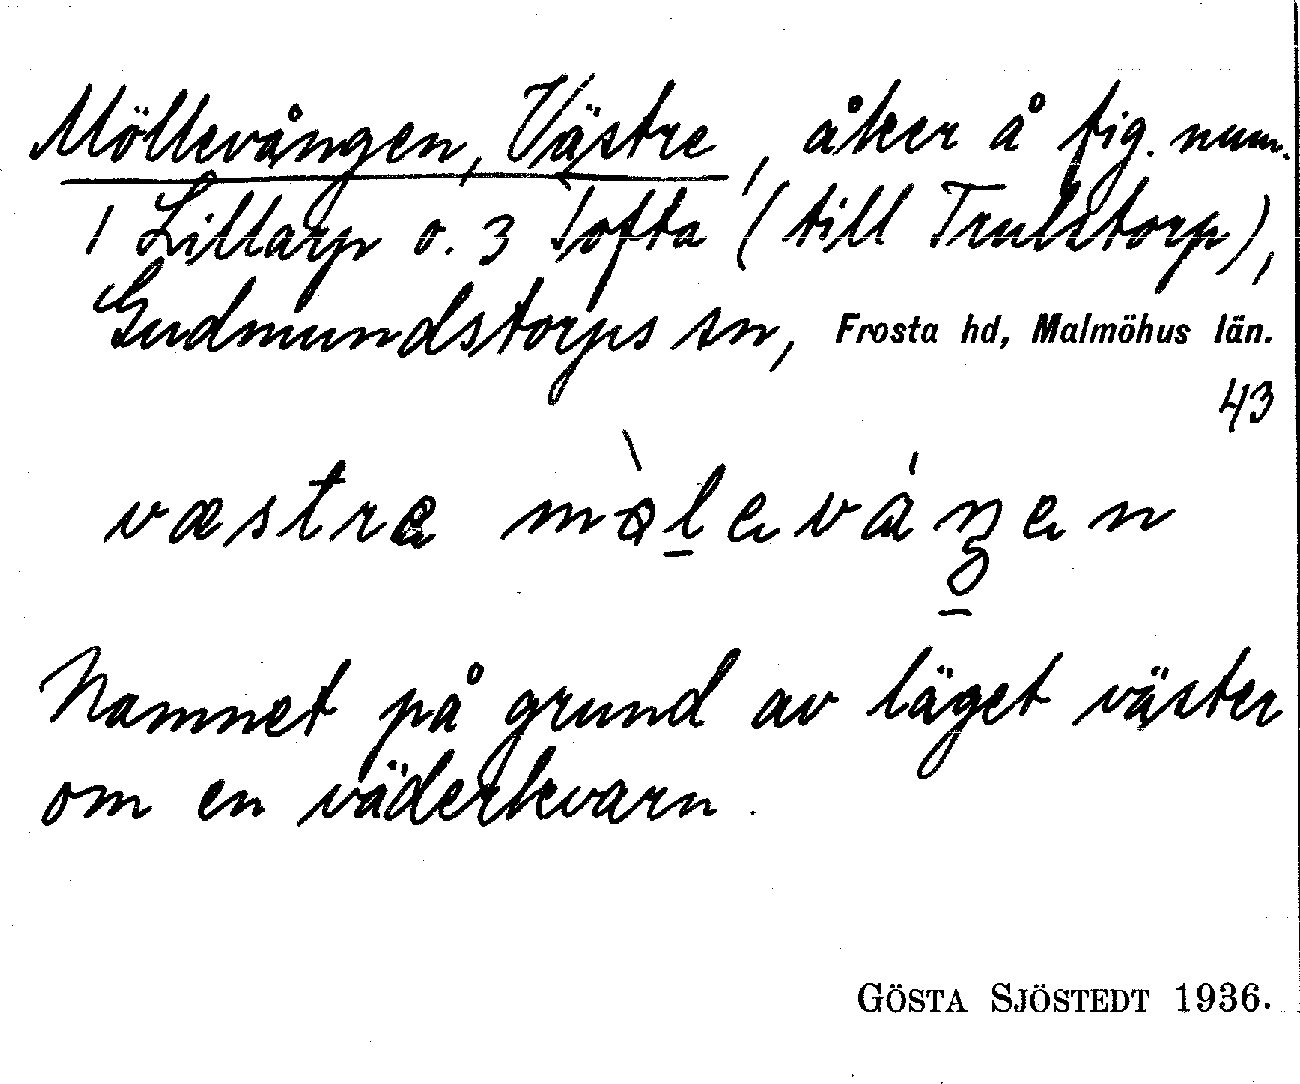 Möllevången, Västre, åker å fig. num.
1 Lillarp o. 3 Tofta (till Trulstorp),
Gudmundstorps sn, Frosta hd, Malmöhus län.
43
væstre mø̀leváŋen
Namnet på grund av läget väster
om en väderkvarn.
GÖSTA SJÖSTEDT 1936.